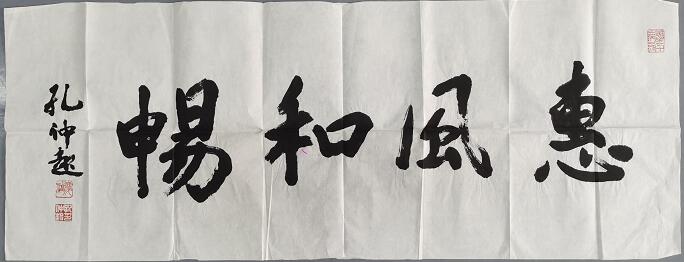 惠風和暢
孔仲起